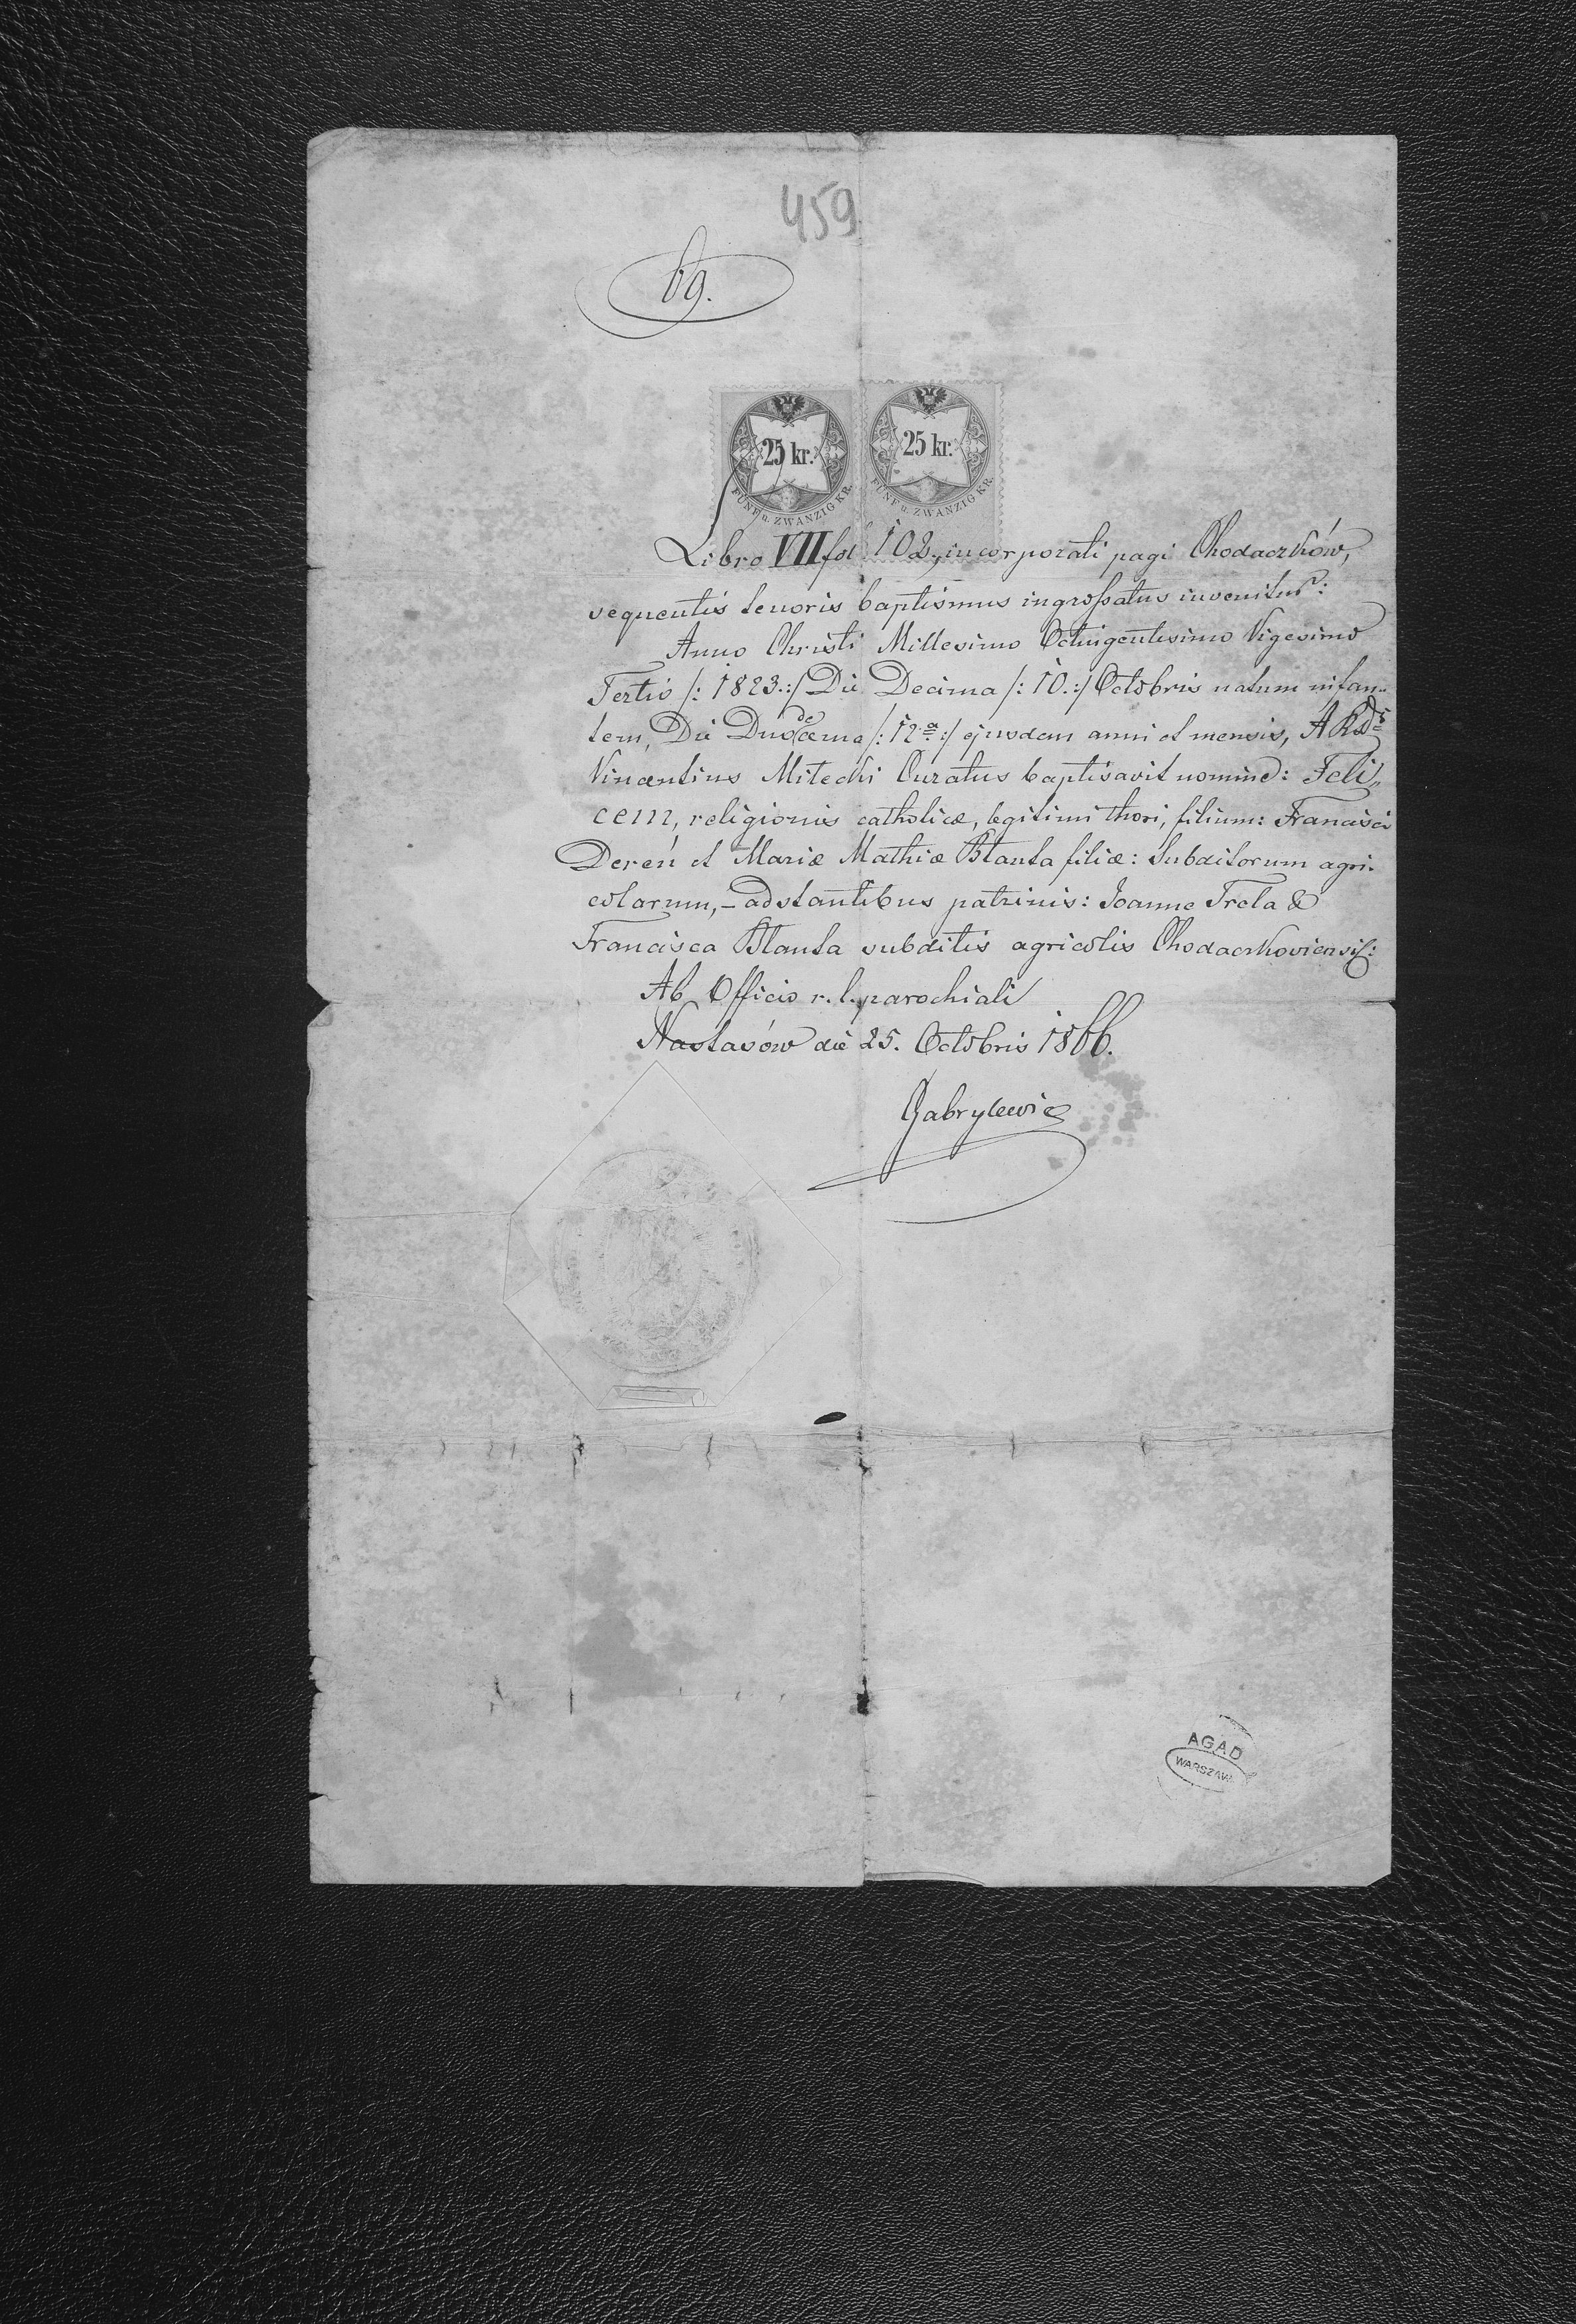 459
69.
25 kr.
FÜNF u. ZWANZIG KR.
25 kr.
FÜNF u. ZWANZIG KR.
Libro VII fol. 102, incorporati pagi Chodaczków,
sequentis tenoris baptismus ingrossatus invenitur:
Anno Christi Millesimo Octingentesimo Vigesimo
Tertio /: 1823.:/ Die Decima /: 10.:/ Octobris natum infan„
tem, Die Duodecima /: 12a :/ ejusdem anni et mensis, A Rds
Vincentius Mitecki Curatus baptisavit nomine: Feli„
cem, religionis catholicæ, legitimi thori, filium: Francisci
Dereń et Mariæ Mathiæ Blanta filiæ: Subditorum agri„
colarum, – adstantibus patrinis: Joanne Trela &
Francisca Blanta subditis agricolis Chodaczkoviensib:
Ab Officio r. l. parochiali
Nastasów die 25. Octobris 1866.
Gabrylewicz
AGAD
WARSZAWA